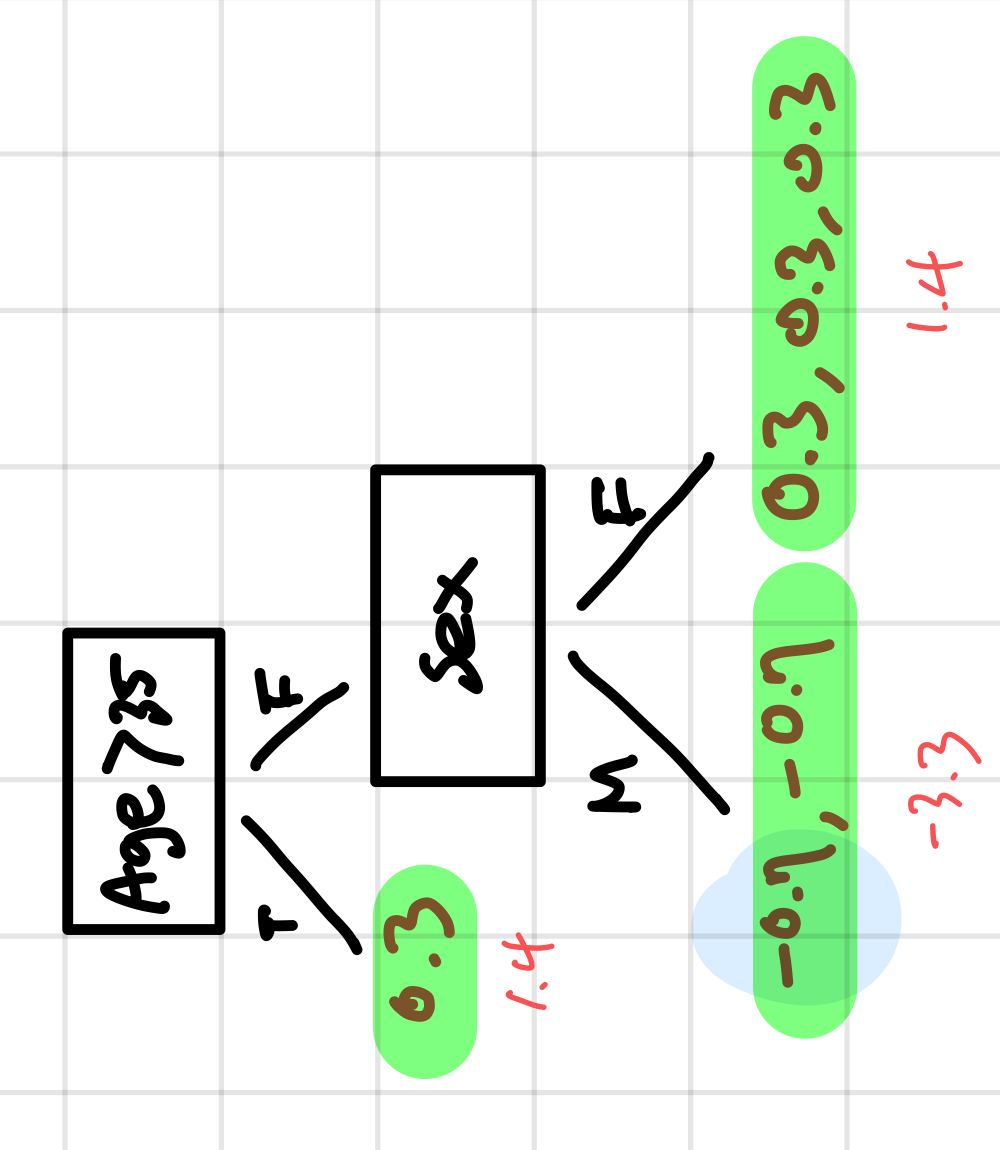 Age >35
T F
0.3
1.4
Sex
M F
-0.7, -0.7 0.3, 0.3, 0.3
-3.3 1.4